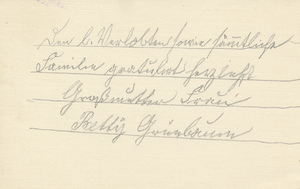 Den l. Verlobten sowie sämtliche
Familie gratuliert herzlichst
Großmutter Frau
Betty Grünbaum